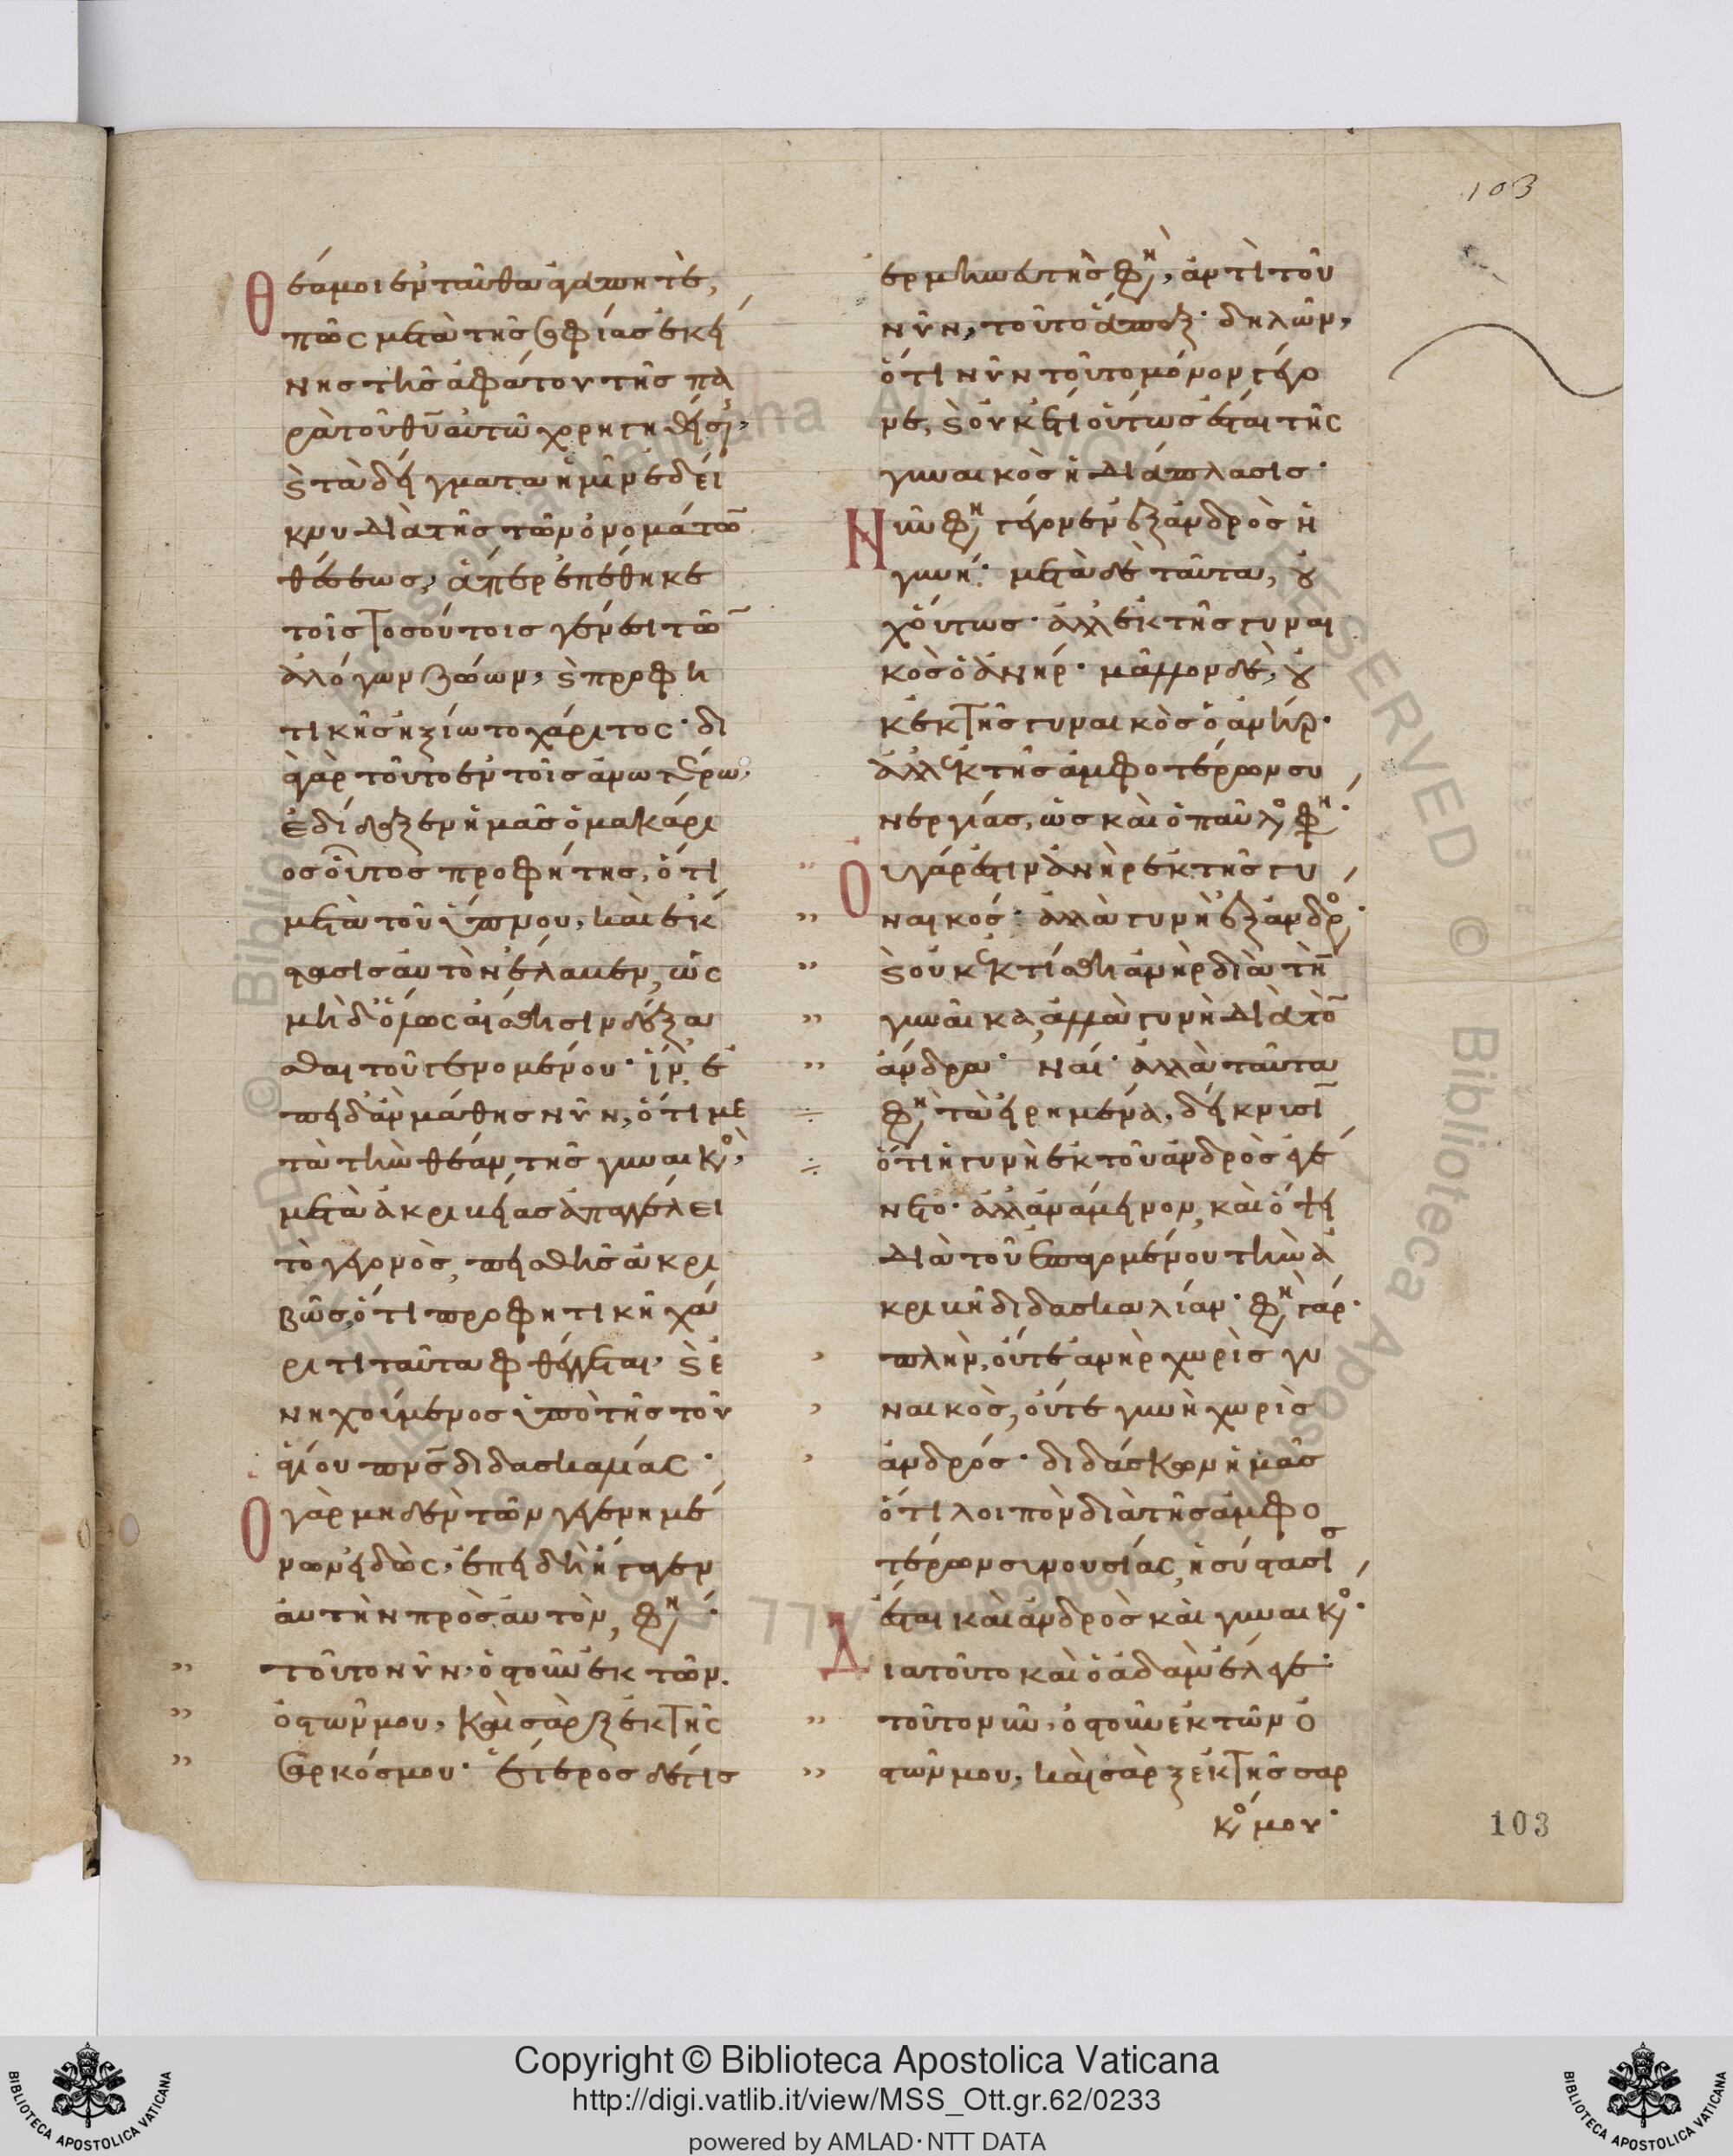 103
Θέα μοι ἐνταῦθα ἀγαπητὲ,
πῶς μετὰ τῆς σοφίας ἐκεί
νης τῆς ἀφάτου τῆς πα
ρὰ τοῦ θυ αὐτῶ χορηγηθείσ,
ϛ τὰ δείγματα ἡμῖν ἐδεί
κνυ διὰ τῆς τῶν ὀνομάτω
θέσεως, ἅπερ ἐπέθηκε
τοῖς τοσούτοις γένεσι τῶ
ἀλόγων ζώων, ϛ προφη
τικῆς ἠξίωτο χάριτος· δι
ὰ γὰρ τοῦτο ἐν τοῖς ἀνωτέρω
ἐδίδαξεν ἡμᾶς ὁ μακάρι
ος οὗτος προφήτης, ὅτι
μετὰ τοῦ ὕπνου, καὶ ἔκ
στασις αὐτὸν ἔλαβεν, ὡς
μὴ δ' ὅλως αἴσθησιν δέξα
σθαι τοῦ γενομένου· ἵν' ἐ
πειδὰν μάθης νῦν, ὅτι με
τὰ τὴν θέαν τῆς γυναικο,
μετὰ ἀκριβείας ἀπαγγέλει
τὸ γεγονὸς, πεισθῆς ἀκρι
βῶς, ὅτι προφητικῆ χά
ριτι ταῦτα φθέγγεται, ϛ ἐ
νηχούμενος ὑπὸ τῆς τοῦ
ἁγίου πνς διδασκαλίας·
Ὁ γὰρ μηδὲν τῶν γεγενημέ
νων εἰδὼς, ἐπειδὴ ἤγαγεν
αὐτὴν πρὸς αὐτὸν, φη·
τοῦτο νῦν, ὀστοῦν ἐκ τῶν
ὀστῶν μου, καὶ σὰρξ ἐκ τῆς
σαρκός μου· ἕτερος δέ τις
ἑρμηνευτής φη, ἀντὶ τοῦ
νῦν, τοῦτο ἅπαξ· δηλῶν,
ὅτι νῦν τοῦτο μόνον γέγο
νε, ϛ οὐκέτι οὕτως ἔσται τῆς
γυναικὸς ἡ διάπλασις·
Νῦν φη γέγονεν ἐξ ἀνδρὸς ἡ
γυνή· μετὰ δὲ ταῦτα, οὐ
χ' οὕτως· ἀλλ' ἐκ τῆς γυναι
κὸς ὁ ἀνήρ· μᾶλλον δὲ, οὐ
κ ἐκ τῆς γυναικὸς ὁ ἀνήρ·
ἀλλ' ἐκ τῆς ἀμφοτέρων συ
νεργίας, ὡς καὶ ὁ παῦλο φη·
Οὐ γάρ ἐστιν ἀνὴρ ἐκ τῆς γυ
ναικός· ἀλλὰ γυνὴ ἐξ ἀνδρο·
ϛ οὐκ ἐκτίσθη ἀνὴρ διὰ τὴ
γυναῖκα, ἀλλὰ γυνὴ διὰ τὸ
ἄνδρα· Ναί· ἀλλὰ ταῦτα
φη τὰ εἰρημένα, δείκνυσι
ὅτι ἡ γυνὴ ἐκ τοῦ ἀνδρὸς ἐγέ
νετο· ἀλλ' ἀνάμεινον, καὶ ὄψει
διὰ τοῦ ἐπαγομένου τὴν ἀ
κριβῆ διδασκαλίαν· φη γάρ·
πλὴν, οὔτε ἀνὴρ χωρὶς γυ
ναικὸς, οὔτε γυνὴ χωρὶς
ἀνδρός· διδάσκων ἡμᾶς
ὅτι λοιπὸν διὰ τῆς ἀμφο
τέρων συνουσίας, ἡ σύστασις
ἔσται καὶ ἀνδρὸς καὶ γυναικο·
Διατοῦτο καὶ ὁ ἀδὰμ ἔλεγε·
τοῦτο νῦν, ὀστοῦν ἐκ τῶν ὀ
στῶν μου, καὶ σὰρξ ἐκ τῆς σαρ
κό μου·
103
Copyright © Biblioteca Apostolica Vaticana
http://digi.vatlib.it/view/MSS_Ott.gr.62/0233
powered by AMLAD·NTT DATA
BIBLIOTECA APOSTOLICA VATICANA
BIBLIOTECA APOSTOLICA VATICANA